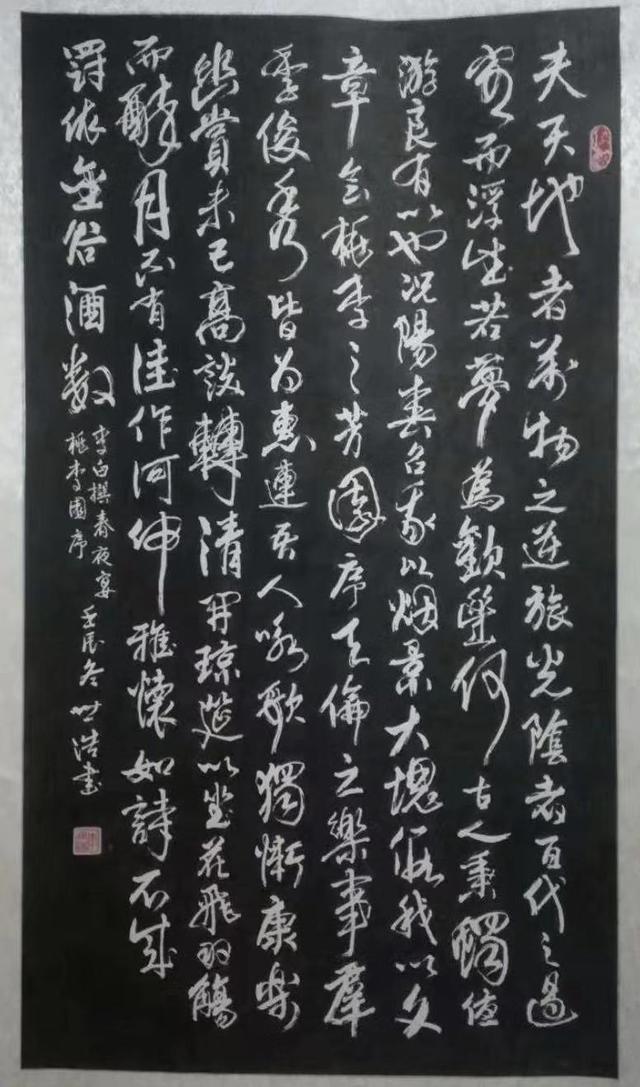 夫天地者萬物之逆旅光陰者百代之過
客而浮生若夢為歡幾何古人秉燭夜
游良有以也況陽春召我以烟景大塊假我以文
章會桃李之芳園序天倫之樂事羣
季俊秀皆為惠連吾人詠歌獨慚康樂
幽賞未已高談轉清開瓊筵以坐花飛羽觴
而醉月不有佳作何伸雅懷如詩不成
罰依金谷酒數
李白撰春夜宴
桃李園序
壬辰冬世浩書